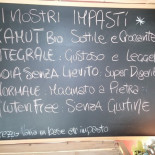 I NOSTRI IMPASTI
KAMUT Bio Sottile e Croccante
INTEGRALE: Gustoso e Legger
SOIA Senza Lievito: Super Digeri
NORMALE: Macinato a Pietra
GLUTEN FREE Senza Glutine
prezzo varia in base ad impasto